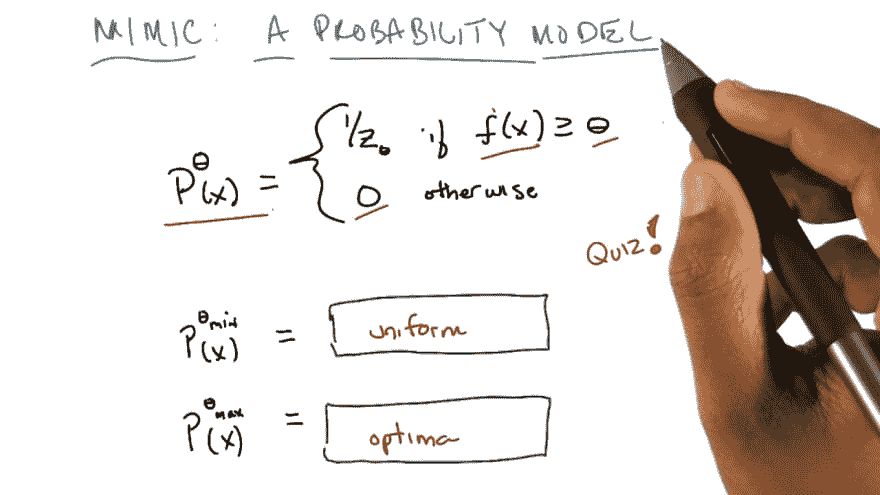 MIMIC: A PROBABILITY MODEL
P^θ(x) = { 1/Zθ if f(x) ≥ θ
0 otherwise
Quiz!
P^θmin(x) = uniform
P^θmax(x) = optima